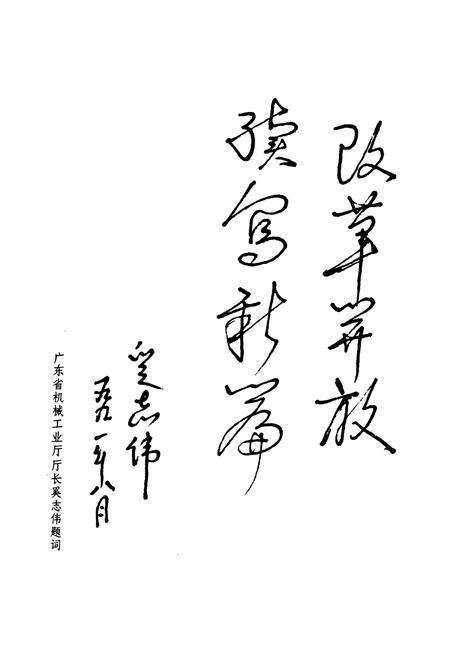 改革开放
续写新篇
奚志伟
一九九一年八月
广东省机械工业厅厅长奚志伟题词